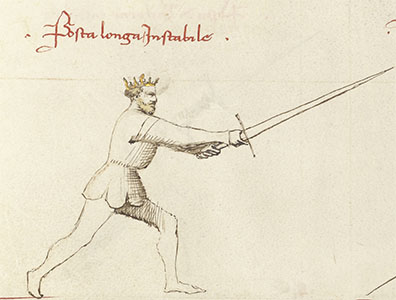 · Posta longa Instabile ·